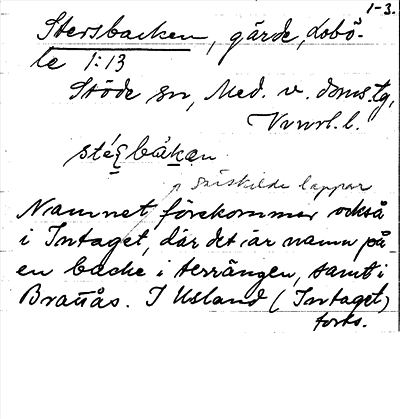 1-3.
Stersbacken, gärde, Lobö-
le 1:13
Stöde sn, Med. v. doms.tg,
Vvnrl. l.
stéʂbàkan
på särskilda lappar
Namnet förekommer också
i Intaget, där det är namn på
en backe i terrängen, samt i
Brattås. I Usland (Intaget)
forts.